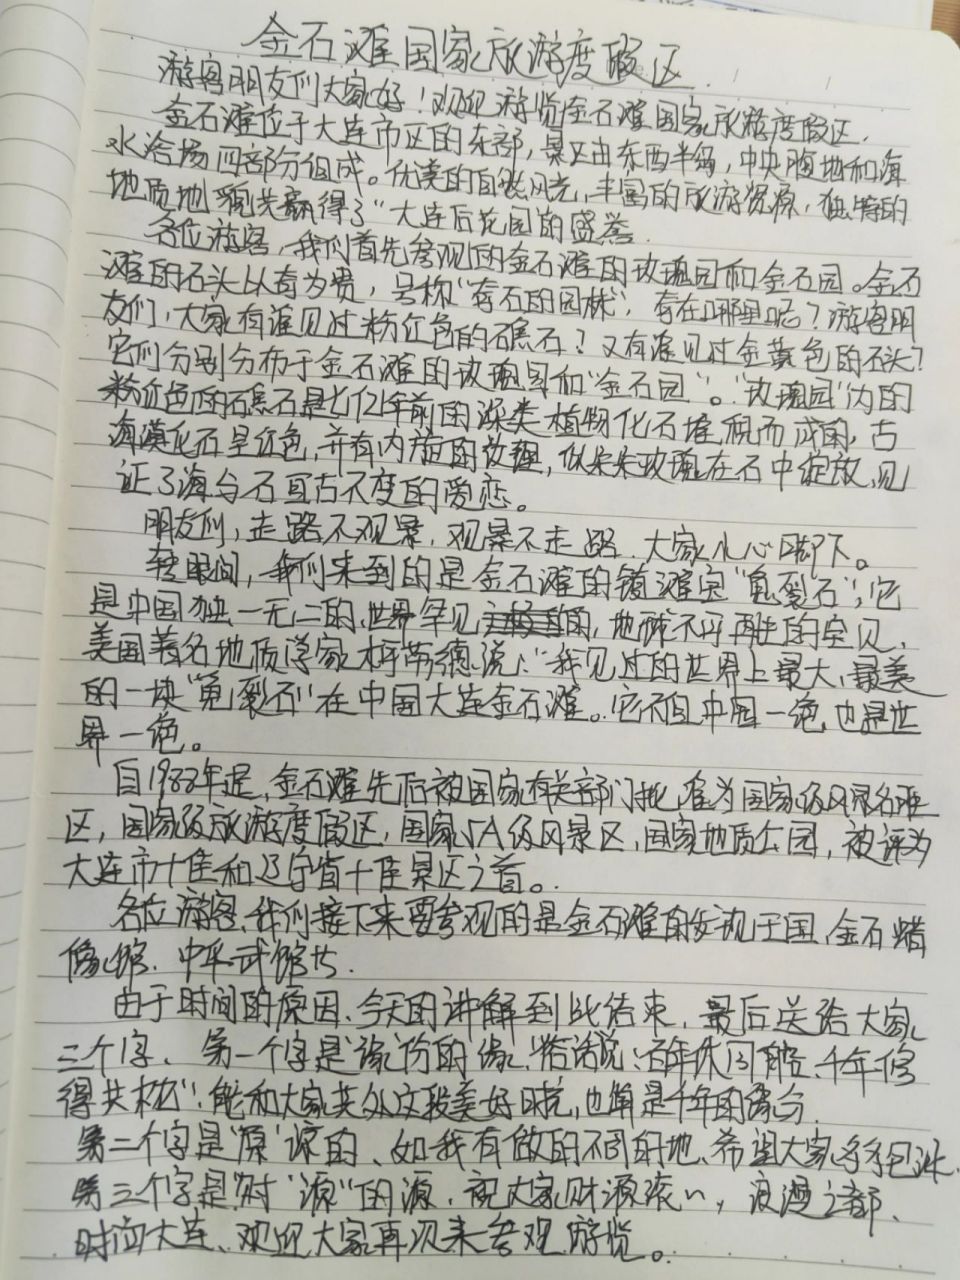 金石滩国家旅游度假区
游客朋友们大家好！欢迎游览金石滩国家旅游度假区，
金石滩位于大连市区的东部，景区由东西半岛，中央腹地和海
水浴场四部分组成。优美的自然风光，丰富的旅游资源，独特的
地质地貌先赢得了“大连后花园的盛誉．
各位游客，我们首先参观的金石滩的玫瑰园和金石园。金石
滩的石头以奇为贵，号称“奇石的园林”，奇在哪里呢？游客朋
友们，大家有谁见过粉红色的礁石？又有谁见过金黄色的石头？
它们分别分布于金石滩的玫瑰园和“金石园”。“玫瑰园”内的
粉红色的礁石是七亿年前的藻类植物化石堆积而成的，古
海藻化石呈红色，并有内旋的纹理，似朵朵玫瑰在石中绽放，见
证了海与石亘古不变的爱恋。
朋友们，走路不观景，观景不走路．大家小心脚下。
转眼间，我们来到的是金石滩的镇滩宝“龟裂石”，它
是中国独一无二的、世界罕见的，地球不可再生的宝贝．
美国著名地质学家 说：“我见过的世界上最大、最美
的一块“龟裂石”在中国大连金石滩。它不但中国一绝，也是世
界一绝。
自1988年起，金石滩先后被国家有关部门批准为国家级风景名胜
区，国家级旅游度假区，国家5A级风景区，国家地质公园，被评为
大连市十佳和辽宁省十佳景区之首。
各位游客，我们接下来要参观的是金石滩的发现王国，金石蜡
像馆．中华武馆 ．
由于时间的原因、今天的讲解到此结束，最后送给大家
三个字、第一个字是‘缘’份的缘．俗话说：百年修 、千年修
得共枕”，能和大家共处这段美好时光，也算是千年的缘分．
第二个字是‘原’谅的、如我有做的不 的地、希望大家多多包涵．
第三个字是“财‘源’”的源．祝大家财源滚〃，浪漫之都、
时尚大连、欢迎大家再次来参观游览。